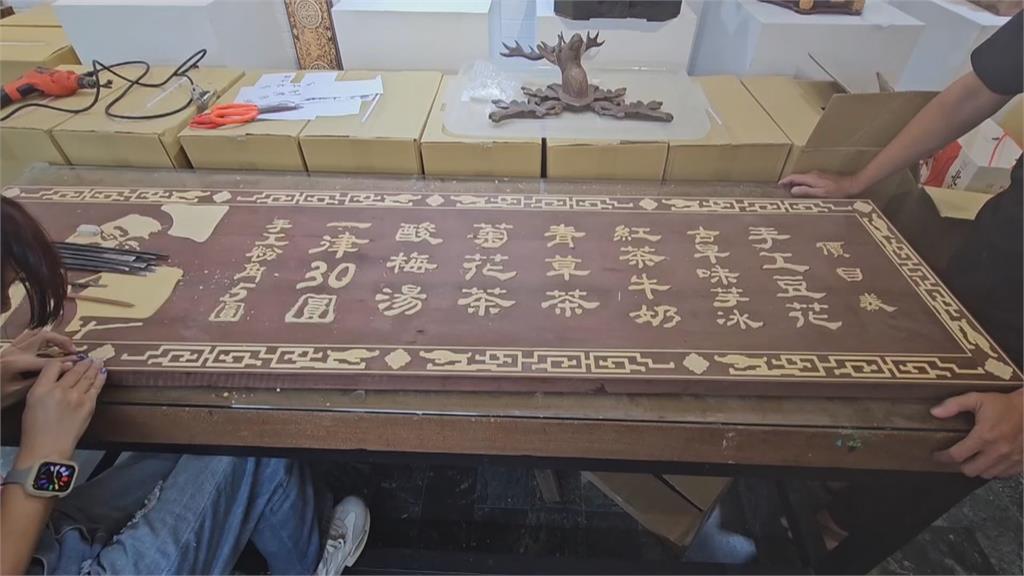 價目表
手工豆花
古早味芋冰
紅茶牛奶
青草茶
菊花茶
酸梅湯
一律30圓
手工粉角5圓